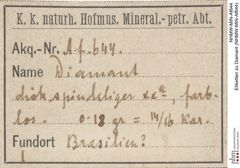 K. k. naturh. Hofmus. Mineral.-petr. Abt.
Akq.-Nr. A.f. 644.
Name Diamant
dick spindeliger xx, farb-
los. 0·18 gr = 14/16 Kar.
Fundort Brasilien?
NHMW-MIN-Af644
Etiketten zu Diamant (NHMW-MIN-Af644)